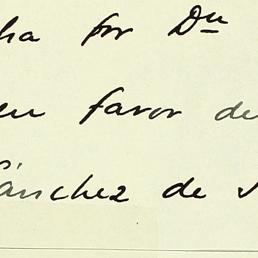 ha por Dn
en favor de
Sánchez de